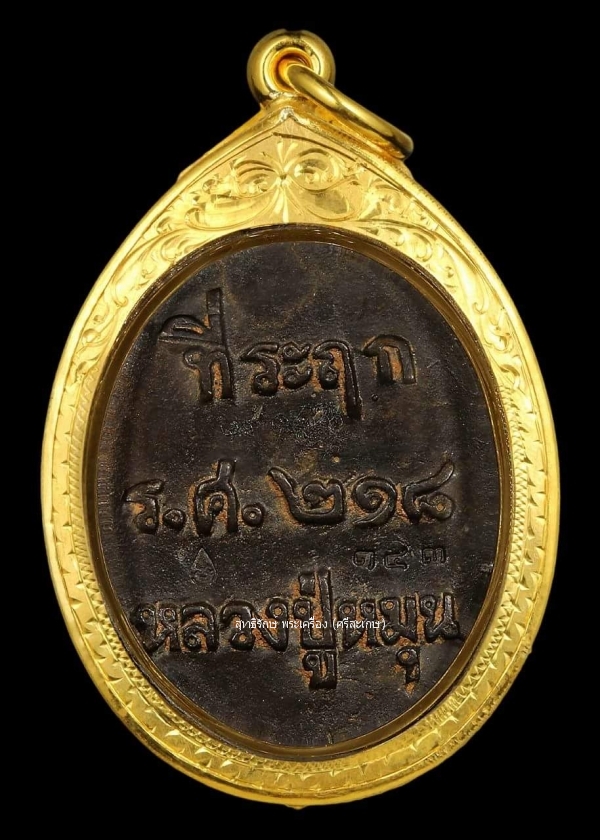 ที่ระฤก
ร.ศ. ๒๑๘
๑๕๓
หลวงปู่หมุน
สุทธิรักษ์ พระเครื่อง (ศรีสะเกษ)